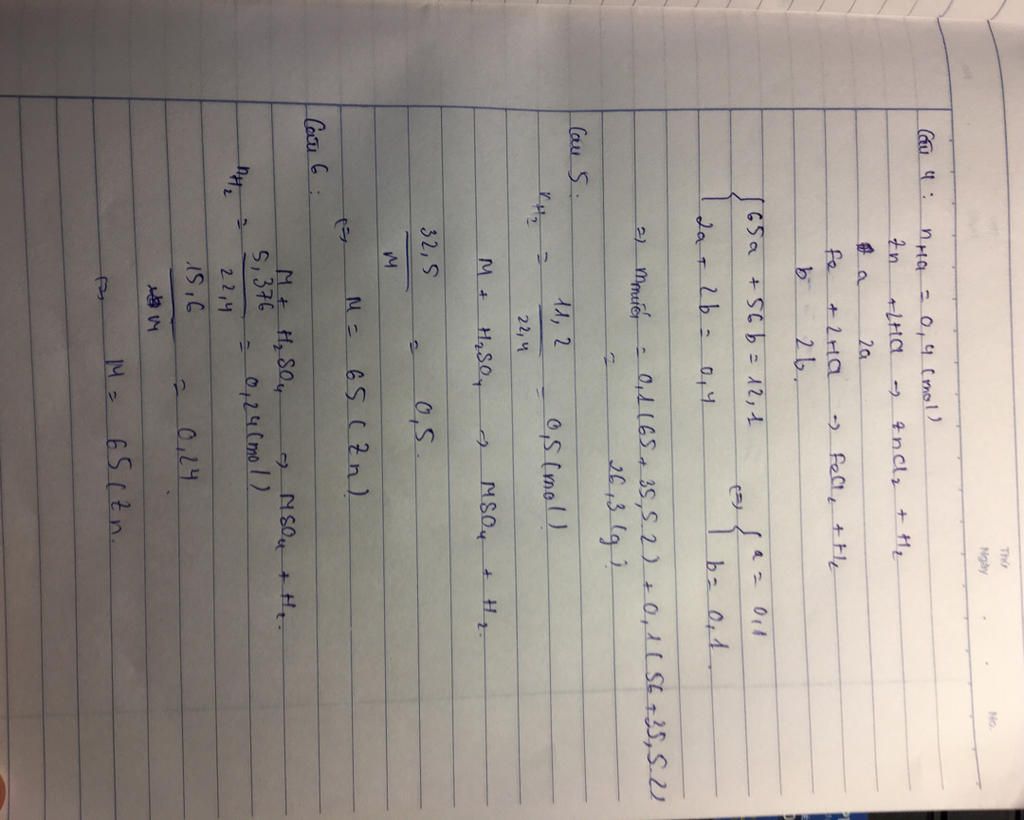 Thứ
Ngày
No.
Câu 4 : nHCl = 0,4 (mol)
Zn + 2HCl → ZnCl₂ + H₂
a 2a
Fe + 2HCl → FeCl₂ + H₂
b 2b.
{ 65a + 56b = 12,1 ⇔ { a = 0,1
2a + 2b = 0,4 b = 0,1.
⇒ m muối = 0,1 (65 + 35,5.2) + 0,1 (56 + 35,5.2)
= 26,3 (g)
Câu 5 :
nH₂ = 11,2 / 22,4 = 0,5 (mol)
M + H₂SO₄ → MSO₄ + H₂.
32,5 / M = 0,5.
⇔ M = 65 (Zn)
Câu 6 :
M + H₂SO₄ → MSO₄ + H₂.
nH₂ = 5,376 / 22,4 = 0,24 (mol)
15,6 / M = 0,24.
⇔ M = 65 (Zn.